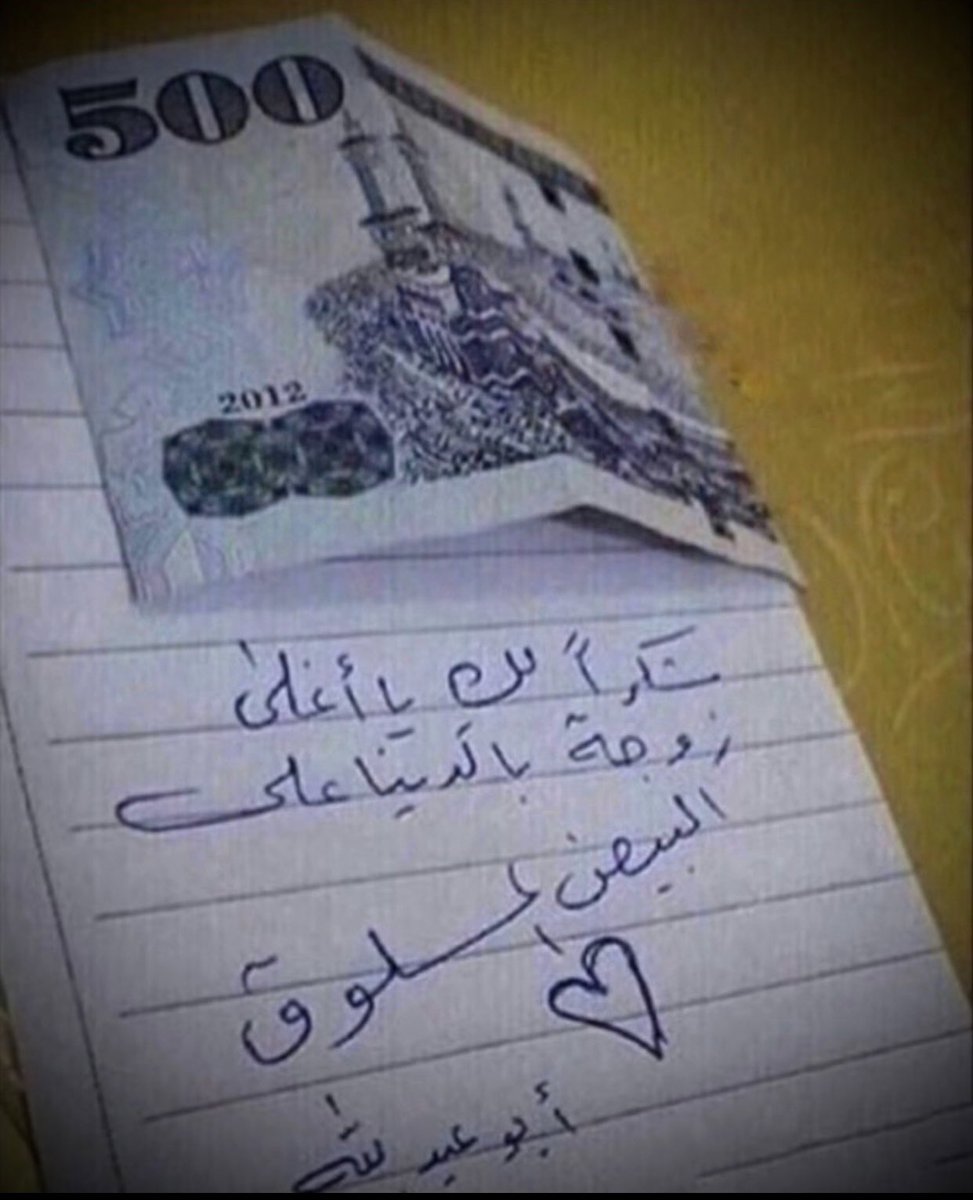 500
2012
شكراً لك يا أغلى
زوجة بالدنيا على
البيض المسلوق
أبو عبد الله